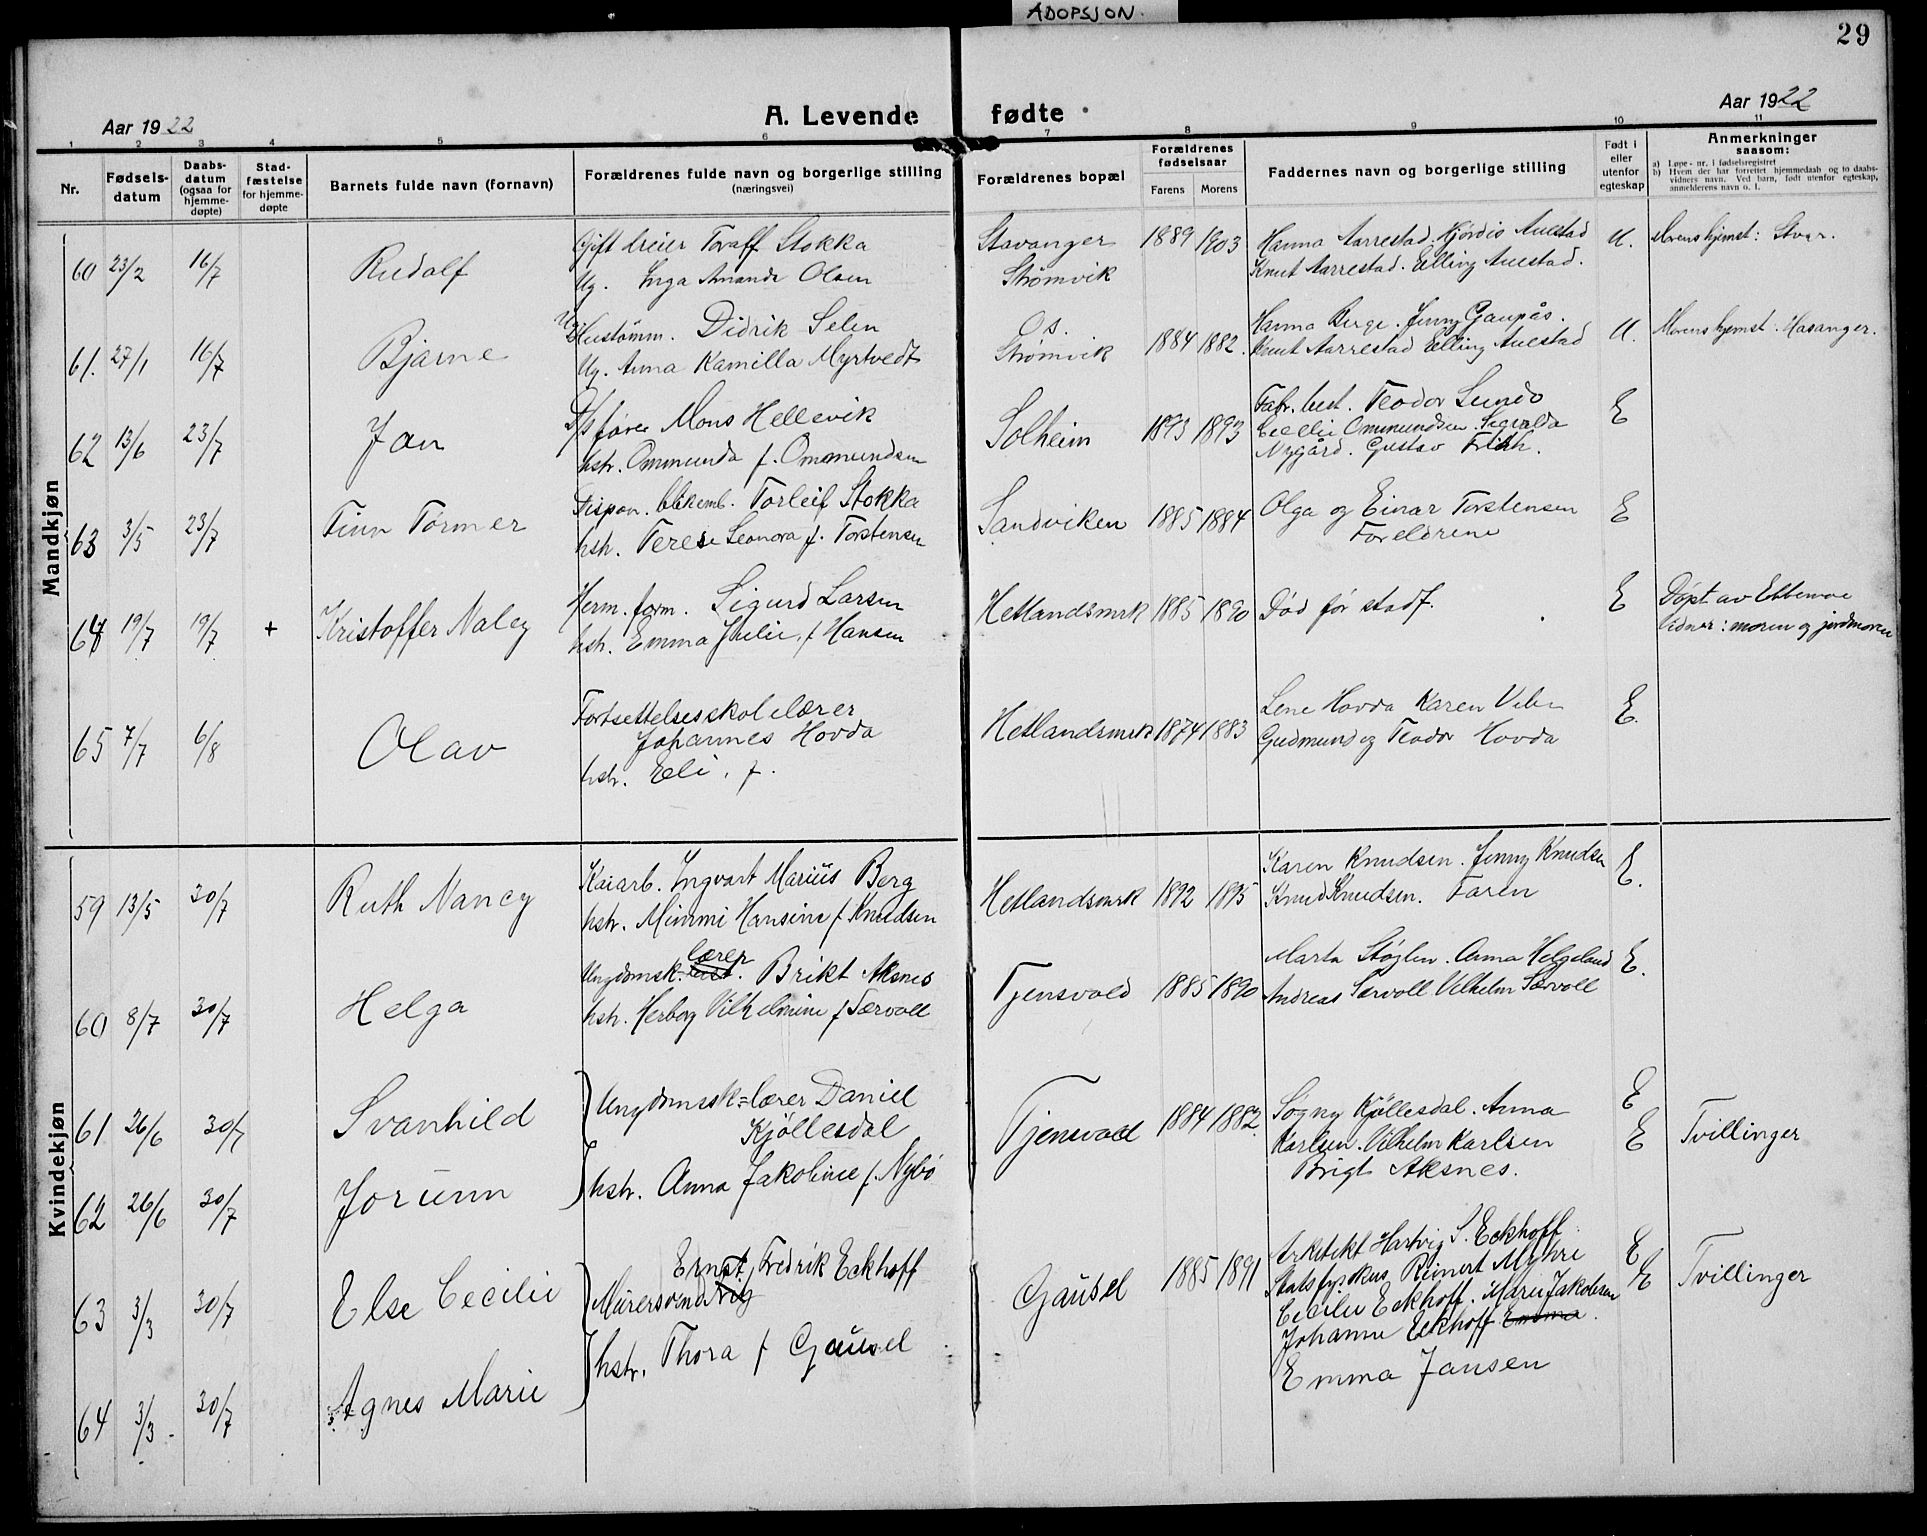 ADOPSJON.
29
Aar 1922
A. Levende fødte
Aar 1922
1 2 3 4 5 6 7 8 9 10 11
Nr.
Fødsels-
datum
Daabs-
datum
(ogsaa for
hjemme-
døpte)
Stad-
fæstelse
for hjemme-
døpte
Barnets fulde navn (fornavn)
Forældrenes fulde navn og borgerlige stilling
(næringsvei)
Forældrenes bopæl
Forældrenes
fødselsaar
Farens Morens
Faddernes navn og borgerlige stilling
Født i
eller
utenfor
egteskap
Anmerkninger
saasom:
a) Løpe-nr. i fødselsregistret
b) Hvem der har forrettet hjemmedaab og to daabs-
vidners navn. Ved barn, født utenfor egteskap,
anmelderens navn o. l.
Mandkjøn
60 23/2 16/7 Rudolf
Gift dreier Toralf Stokka
Ug. Inga Amanda Olsen
Stavanger
Strømvik
1889 1903
Hanna Aarrestad. Hjördis Auestad
Knut Aarrestad. Elling Auestad.
U. Morens hjemst: Stvgr.
61. 27/1 16/7 Bjarne
Hustømm. Didrik Selen
Ug. Anna Kamilla Myrtvedt
Os.
Strømvik
1884 1882.
Hanna Berge. Jenny Gaupås.
Knut Aarrestad Elling Auestad
U. Morens hjemst: Hasanger.
62 13/6 23/7 Jan
D/s fører Mons Hellevik
hstr. Ommunda f. Ommundsen
Solheim
1893 1893
Fabr. best. Teodor Sundo
Cecilie Ommundsen. Sigvalda
Nygård. Gustav
E
63 3/5 23/7 Finn Tormer
Dispon. Torleif Stokka
hstr. Terese Leonora f. Torstensen
Sandviken
1885 1884
Olga og Einar Torstensen
Foreldrene
E
64 19/7 19/7 + Kristoffer Naley
Herm. form. Sigurd Larsen
hstr. Emma Julie, f Hansen
Hetlandsmrk 1885 1890 Død før stadf.
E
Døpt av
Vidner: moren og jordmoren
65 7/7 6/8 Olav
Fortsettelsesskolelærer
Johannes Hovda
hstr. Eli, f.
Hetlandsmrk 1874 1883
Lene Hovda Karen
Gudmund og Teodor Hovda
E.
Kvindekjøn
59 13/5 30/7 Ruth Nancy
Kaiarb. Ingvart Marius Berg
hstr. Mimmi Hansine f Knudsen
Hetlandsmrk 1892 1895
Karen Knudsen. Jenny Knudsen
Knud Knudsen. Faren
E.
60 8/7 30/7 Helga
lærer
Ungdomsk. Brikt Aksnes
hstr. Herborg Vilhelmine f Særvoll
Tjensvold 1885 1890
Marta Støylen. Anna Helgeland
Andreas Særvoll Vilhelm Særvoll
E.
61 26/6 30/7 Svanhild
Ungdomssk=lærer Daniel
Kjöllesdal
Tjensvoll 1884 1882
Søgny Kjöllesdal. Anna
Karlsen. Vilhelm Karlsen
Brigt Aksnes.
E
E Tvillinger
62 26/6 30/7 Jorunn
hstr. Anna Jakobine f. Nybø
63 3/3 30/7 Else Cecilie
Ernst Fredrik Eckhoff
Murersvend
Gausel 1885 1891
Arkitekt Hartvig S. Eckhoff
Statsfysikus Reinert Myhre
Cecilie Eckhoff. Marie Jakobsen
Johanne Eckhoff Emma.
Emma Jansen
E
E Tvillinger
64 3/3 30/7 Agnes Marie
hstr. Thora f Gausel